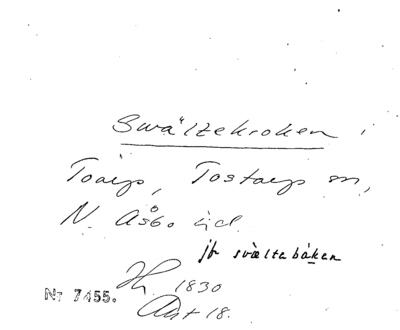 Swältekroken i
Toarp, Tostarp sn,
N. Åsbo hd.
jfr svältebåken
1830
Nr 7455.
Akt 18.